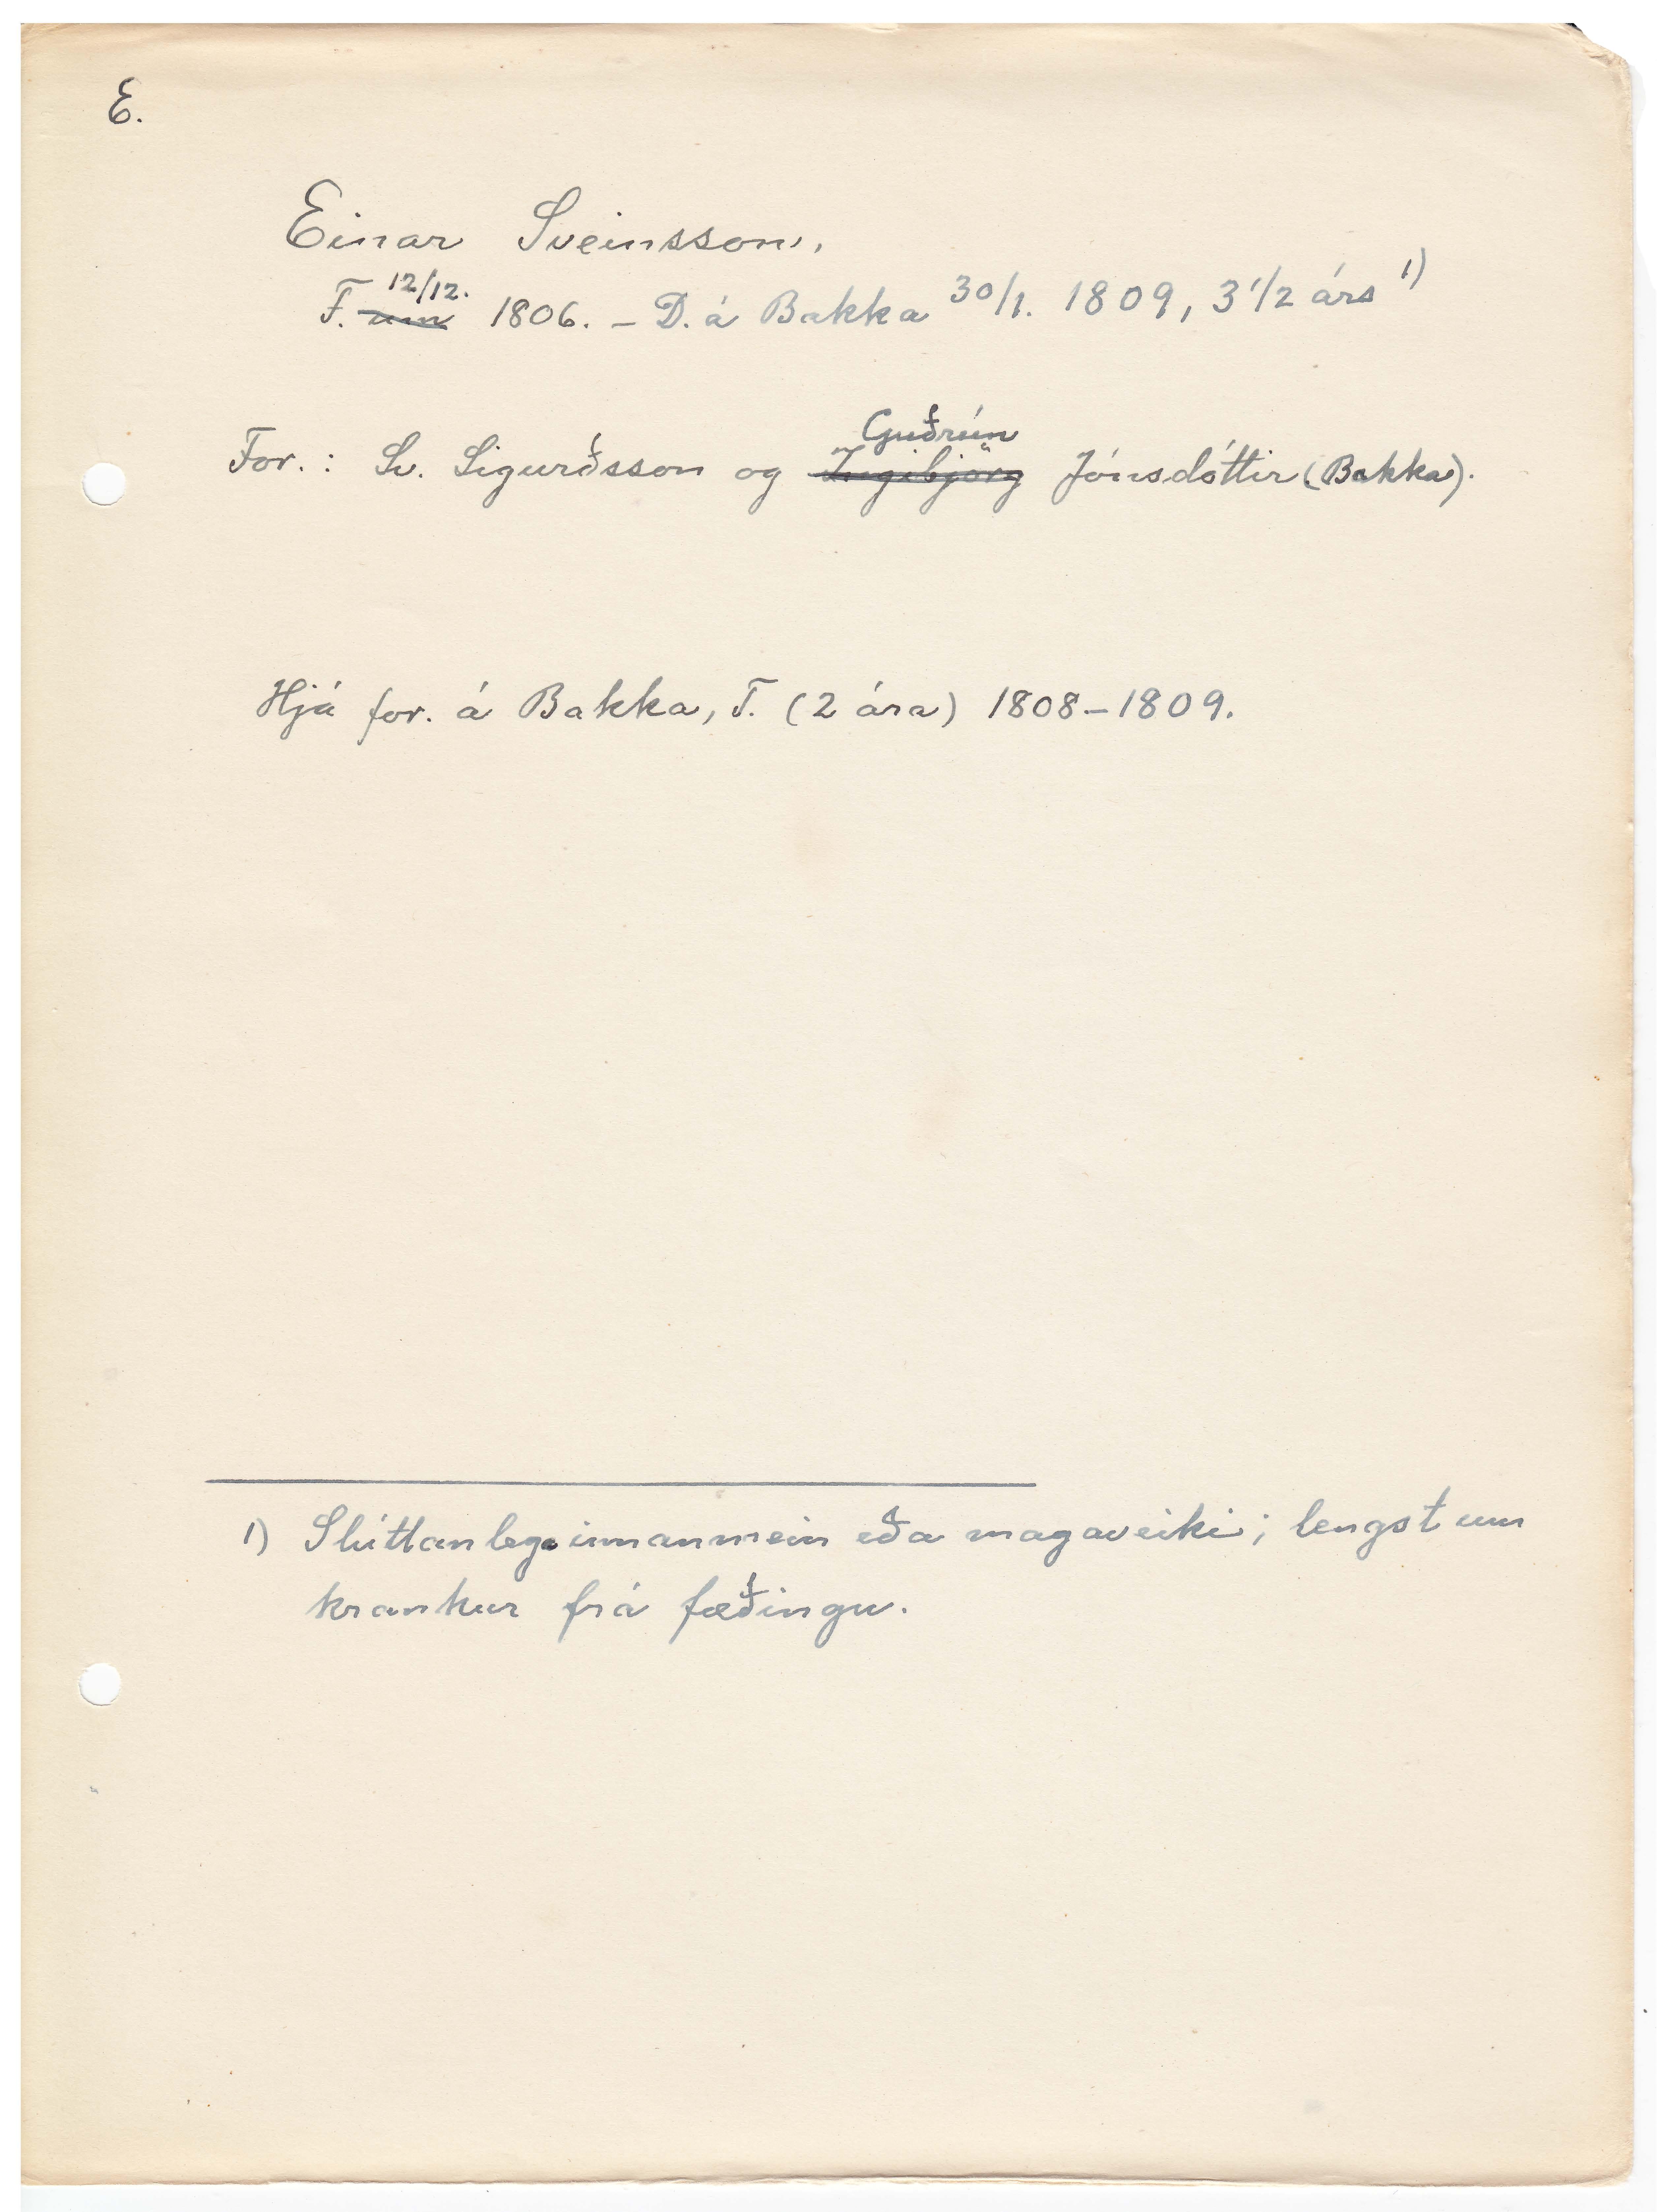 E.
Einar Sveinsson,
F. ~~um~~ 12/12. 1806. – D. á Bakka 30/1. 1809, 3 1/2 árs 1)
For.: Sv. Sigurðsson og ~~Ingibjörg~~ Guðrún Jónsdóttir (Bakka).
Hjá for. á Bakka, T. (2 ára) 1808–1809.
1) innanmein eða magaveiki; lengstum
krankur frá fæðingu.